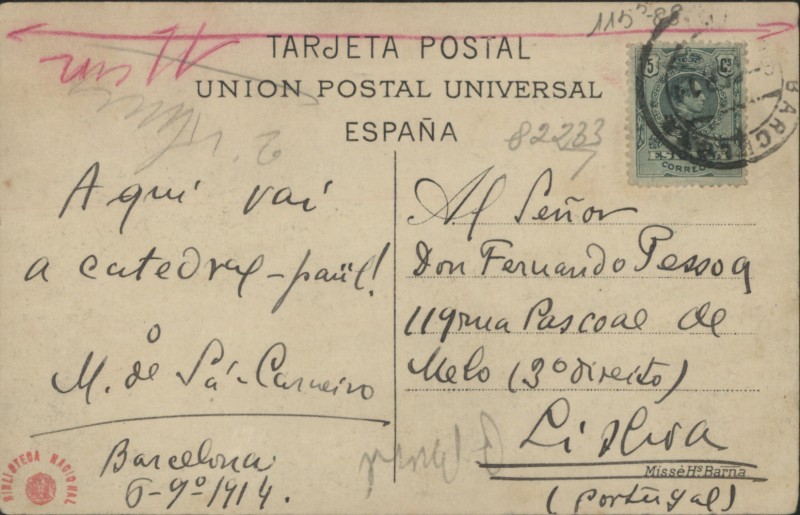 115-88
TARJETA POSTAL
UNION POSTAL UNIVERSAL
ESPAÑA
82233
5 Cs
CORREOS
BARCEL
Aqui vai
a catedral-paúl!
o
M. de Sá-Carneiro
Barcelona
6-9º-1914.
Al Señor
Don Fernando Pessoa
119 rua Pascoal de
Melo (3º direito)
Lisboa
(Portugal)
Missé Hs Barna
BIBLIOTECA NACIONAL